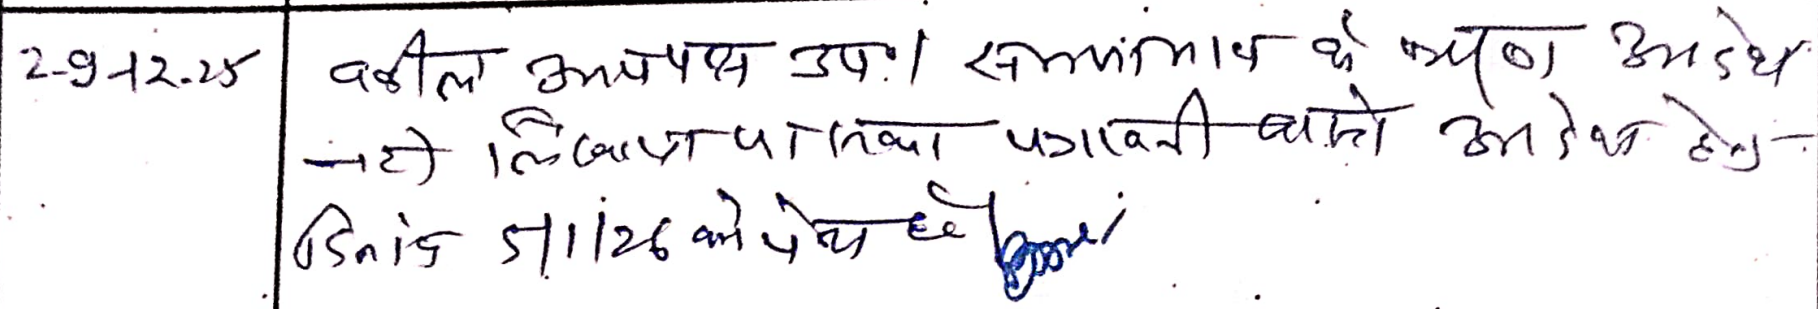 29-12-25
वकील उभयपक्ष उप.। समयाभाव के कारण आदेश
नही लिखाया जा सका पत्रावली वास्ते आदेश हेतु
दिनांक 5/1/26 को पेश हो